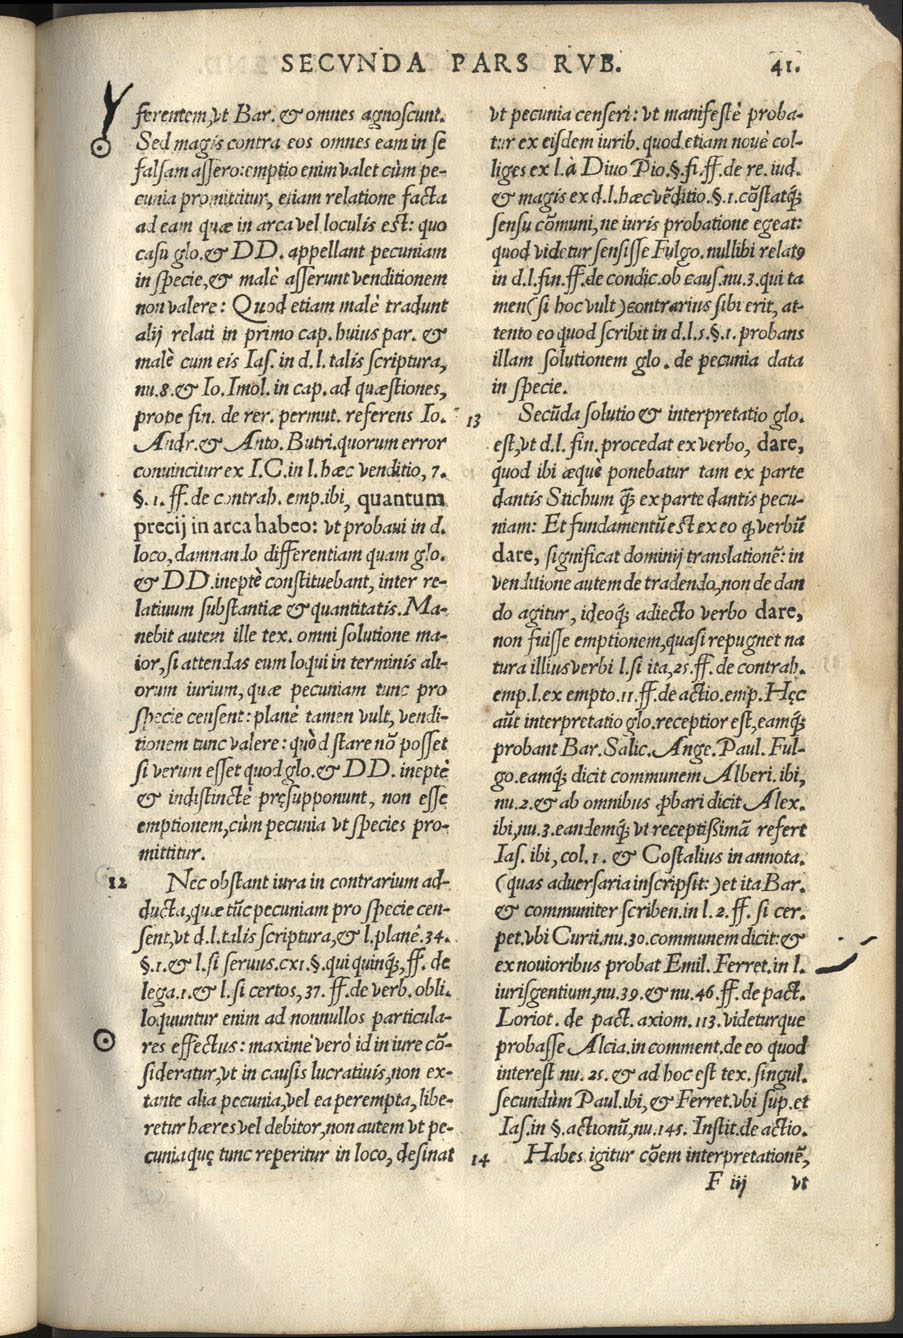 SECVNDA PARS RVB. 41.
ferentem, vt Bar. & omnes agnoscunt.
Sed magis contra eos omnes eam in se
falsam assero: emptio enim valet cùm pe-
cunia promittitur, etiam relatione facta
ad eam quæ in arca vel loculis est: quo
casu glo. & DD. appellant pecuniam
in specie, & malè asserunt venditionem
non valere: Quod etiam malè tradunt
alij relati in primo cap. huius par. &
malè cum eis Ias. in d.l. talis scriptura,
nu. 8. & Io. Imol. in cap. ad quæstiones,
prope fin. de rer. permut. referens Io.
Andr. & Anto. Butri. quorum error
conuincitur ex I.C. in l. hæc venditio, 7.
§. 1. ff. de contrah. emp. ibi, quantum
precij in arca habeo: vt probaui in d.
loco, damnando differentiam quam glo.
& DD. ineptè constituebant, inter re-
latiuum substantiæ & quantitatis. Ma-
nebit autem ille tex. omni solutione ma-
ior, si attendas eum loqui in terminis ali-
orum iurium, quæ pecuniam tunc pro
specie censent: planè tamen vult, vendi-
tionem tunc valere: quòd stare nõ posset
si verum esset quod glo. & DD. ineptè
& indistinctè pręsupponunt, non esse
emptionem, cùm pecunia vt species pro-
mittitur.
12 Nec obstant iura in contrarium ad-
ducta, quæ tũc pecuniam pro specie cen-
sent, vt d.l. talis scriptura, & l. planè. 34.
§. 1. & l. si seruus. cxi. §. qui quinq;, ff. de
lega. 1. & l. si certos, 37. ff. de verb. obli.
loquuntur enim ad nonnullos particula-
res effectus: maximè verò id in iure cõ-
sideratur, vt in causis lucratiuis, non ex-
tante alia pecunia, vel ea perempta, libe-
retur hæres vel debitor, non autem vt pe-
cunia quę tunc reperitur in loco, desinat
vt pecunia censeri: vt manifestè proba-
tur ex eisdem iurib. quod etiam nouè col-
liges ex l. à Diuo Pio. §. fi. ff. de re. iud.
& magis ex d.l. hæc vẽditio. §. 1. cõstatq́;
sensu cõmuni, ne iuris probatione egeat:
quod videtur sensisse Fulgo. nullibi relatꝰ
in d.l. fin. ff. de condic. ob caus. nu. 3. qui ta
men (si hoc vult) contrarius sibi erit, at-
tento eo quod scribit in d.l. 5. §. 1. probans
illam solutionem glo. de pecunia data
in specie.
13 Secũda solutio & interpretatio glo.
est, vt d.l. fin. procedat ex verbo, dare,
quod ibi æquè ponebatur tam ex parte
dantis Stichum q̃; ex parte dantis pecu-
niam: Et fundamentũ est ex eo q; verbũ
dare, significat dominij translationẽ: in
venditione autem de tradendo, non de dan
do agitur, ideoq́; adiecto verbo dare,
non fuisse emptionem, quasi repugnet na
tura illius verbi l. si ita, 25. ff. de contrah.
emp. l. ex empto. 11. ff. de actio. emp. Hęc
aũt interpretatio glo. receptior est, eamq́;
probant Bar. Salic. Ange. Paul. Ful-
go. eamq́; dicit communem Alberi. ibi,
nu. 2. & ab omnibus ꝓbari dicit Alex.
ibi, nu. 3. eandemq́; vt receptissimã refert
Ias. ibi, col. 1. & Costalius in annota.
(quas aduersaria inscripsit:) et ita Bar.
& communiter scriben. in l. 2. ff. si cer.
pet. vbi Curti. nu. 30. communem dicit: &
ex nouioribus probat Emil. Ferret. in l.
iurisgentium, nu. 39. & nu. 46. ff. de pact.
Loriot. de pact. axiom. 113. videturque
probasse Alcia. in comment. de eo quod
interest nu. 25. & ad hoc est tex. singul.
secundùm Paul. ibi, & Ferret. vbi sup. et
Ias. in §. actionũ, nu. 145. Instit. de actio.
14 Habes igitur cõem interpretationẽ,
F iij vt